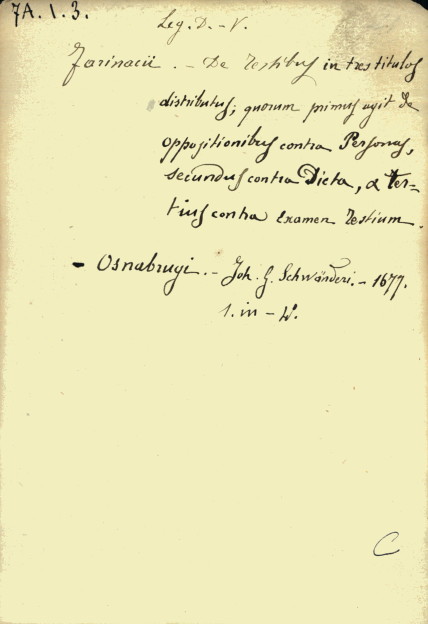 7A. 1. 3.
Leg. D. - V.
Farinacii. - De Testibus in tres titulos
distributus; quorum primus agit de
oppositionibus contra Personas,
secundus contra Dicta, & ter-
tius contra Examen Testium.
- Osnabrugi. - Joh. G. Schwänderi. - 1677.
1. in - 4.
C